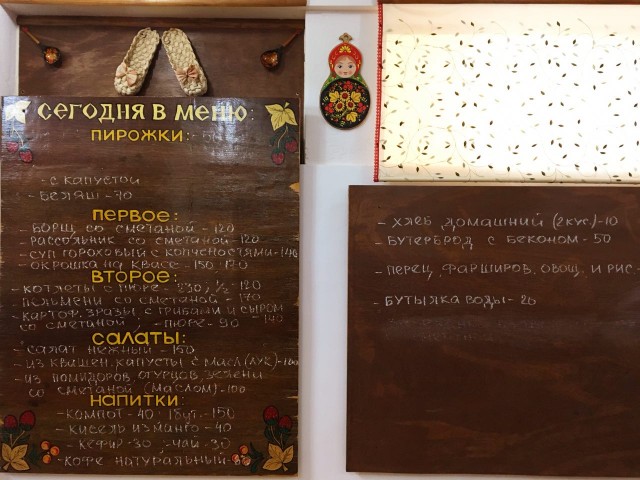 сегодня в меню:
пирожки:
- с капустой
- беляш - 70
первое:
- борщ со сметаной - 120
- рассольник со сметаной - 120
- суп гороховый с копченостями - 140
окрошка на квасе - 150 170
второе:
- котлеты с пюре - 230, ½ - 120
- пельмени со сметаной - 170
- картоф. зразы, с грибами и сыром
со сметаной, - пюре - 90 - 140
салаты:
- салат нежный - 150
- из квашен. капусты с масл (лук) - 100
- из помидоров, огурцов, зелени
со сметаной (маслом) - 100
напитки:
- компот - 40 1бут. - 150
- кисель из манго - 40
- кефир - 30, - чай - 30
- кофе натуральный -
- хлеб домашний (2кус.) - 10
- бутерброд с беконом - 50
- перец, фарширов. овощ. и рис -
- бутылка воды - 20